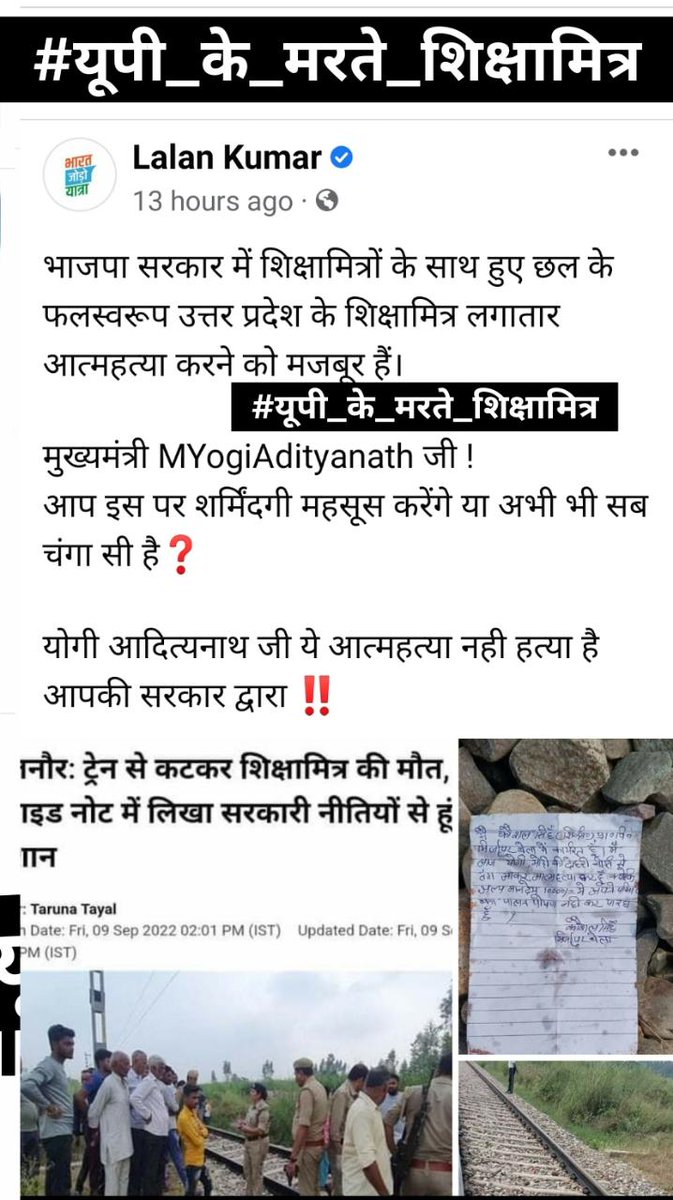 #यूपी_के_मरते_शिक्षामित्र
भारत
जोड़ो
यात्रा
Lalan Kumar
13 hours ago
भाजपा सरकार में शिक्षामित्रों के साथ हुए छल के
फलस्वरूप उत्तर प्रदेश के शिक्षामित्र लगातार
आत्महत्या करने को मजबूर हैं।
#यूपी_के_मरते_शिक्षामित्र
मुख्यमंत्री MYogiAdityanath जी !
आप इस पर शर्मिंदगी महसूस करेंगे या अभी भी सब
चंगा सी है❓
योगी आदित्यनाथ जी ये आत्महत्या नही हत्या है
आपकी सरकार द्वारा ‼️
नौर: ट्रेन से कटकर शिक्षामित्र की मौत,
इड नोट में लिखा सरकारी नीतियों से हूं
ान
: Taruna Tayal
n Date: Fri, 09 Sep 2022 02:01 PM (IST) Updated Date: Fri, 09 S
PM (IST)